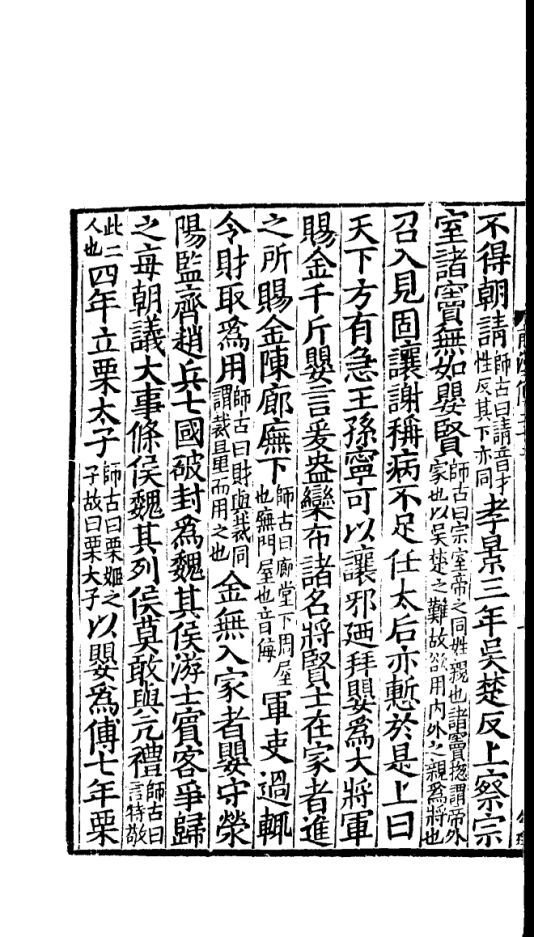 不得朝請師古曰請音才性反其下亦同孝景三年吳楚反上察宗
室諸竇無如嬰賢師古曰宗室帝之同姓親也諸竇揔謂帝外家也以吳楚之難故欲用內外之親爲將也
召入見固讓謝稱病不足任太后亦慙於是上曰
天下方有急王孫寧可以讓邪廼拜嬰爲大將軍
賜金千斤嬰言爰盎欒布諸名將賢士在家者進
之所賜金陳廊廡下師古曰廊堂下周屋也廡門屋也音侮軍吏過輒
令財取爲用師古曰財與裁同謂裁量而用之也金無入家者嬰守滎
陽監齊趙兵七國破封爲魏其侯游士賓客爭歸
之每朝議大事條侯魏其列侯莫敢與亢禮師古曰言特敬
此二人也四年立栗太子師古曰栗姬之子故曰栗太子以嬰爲傅七年栗